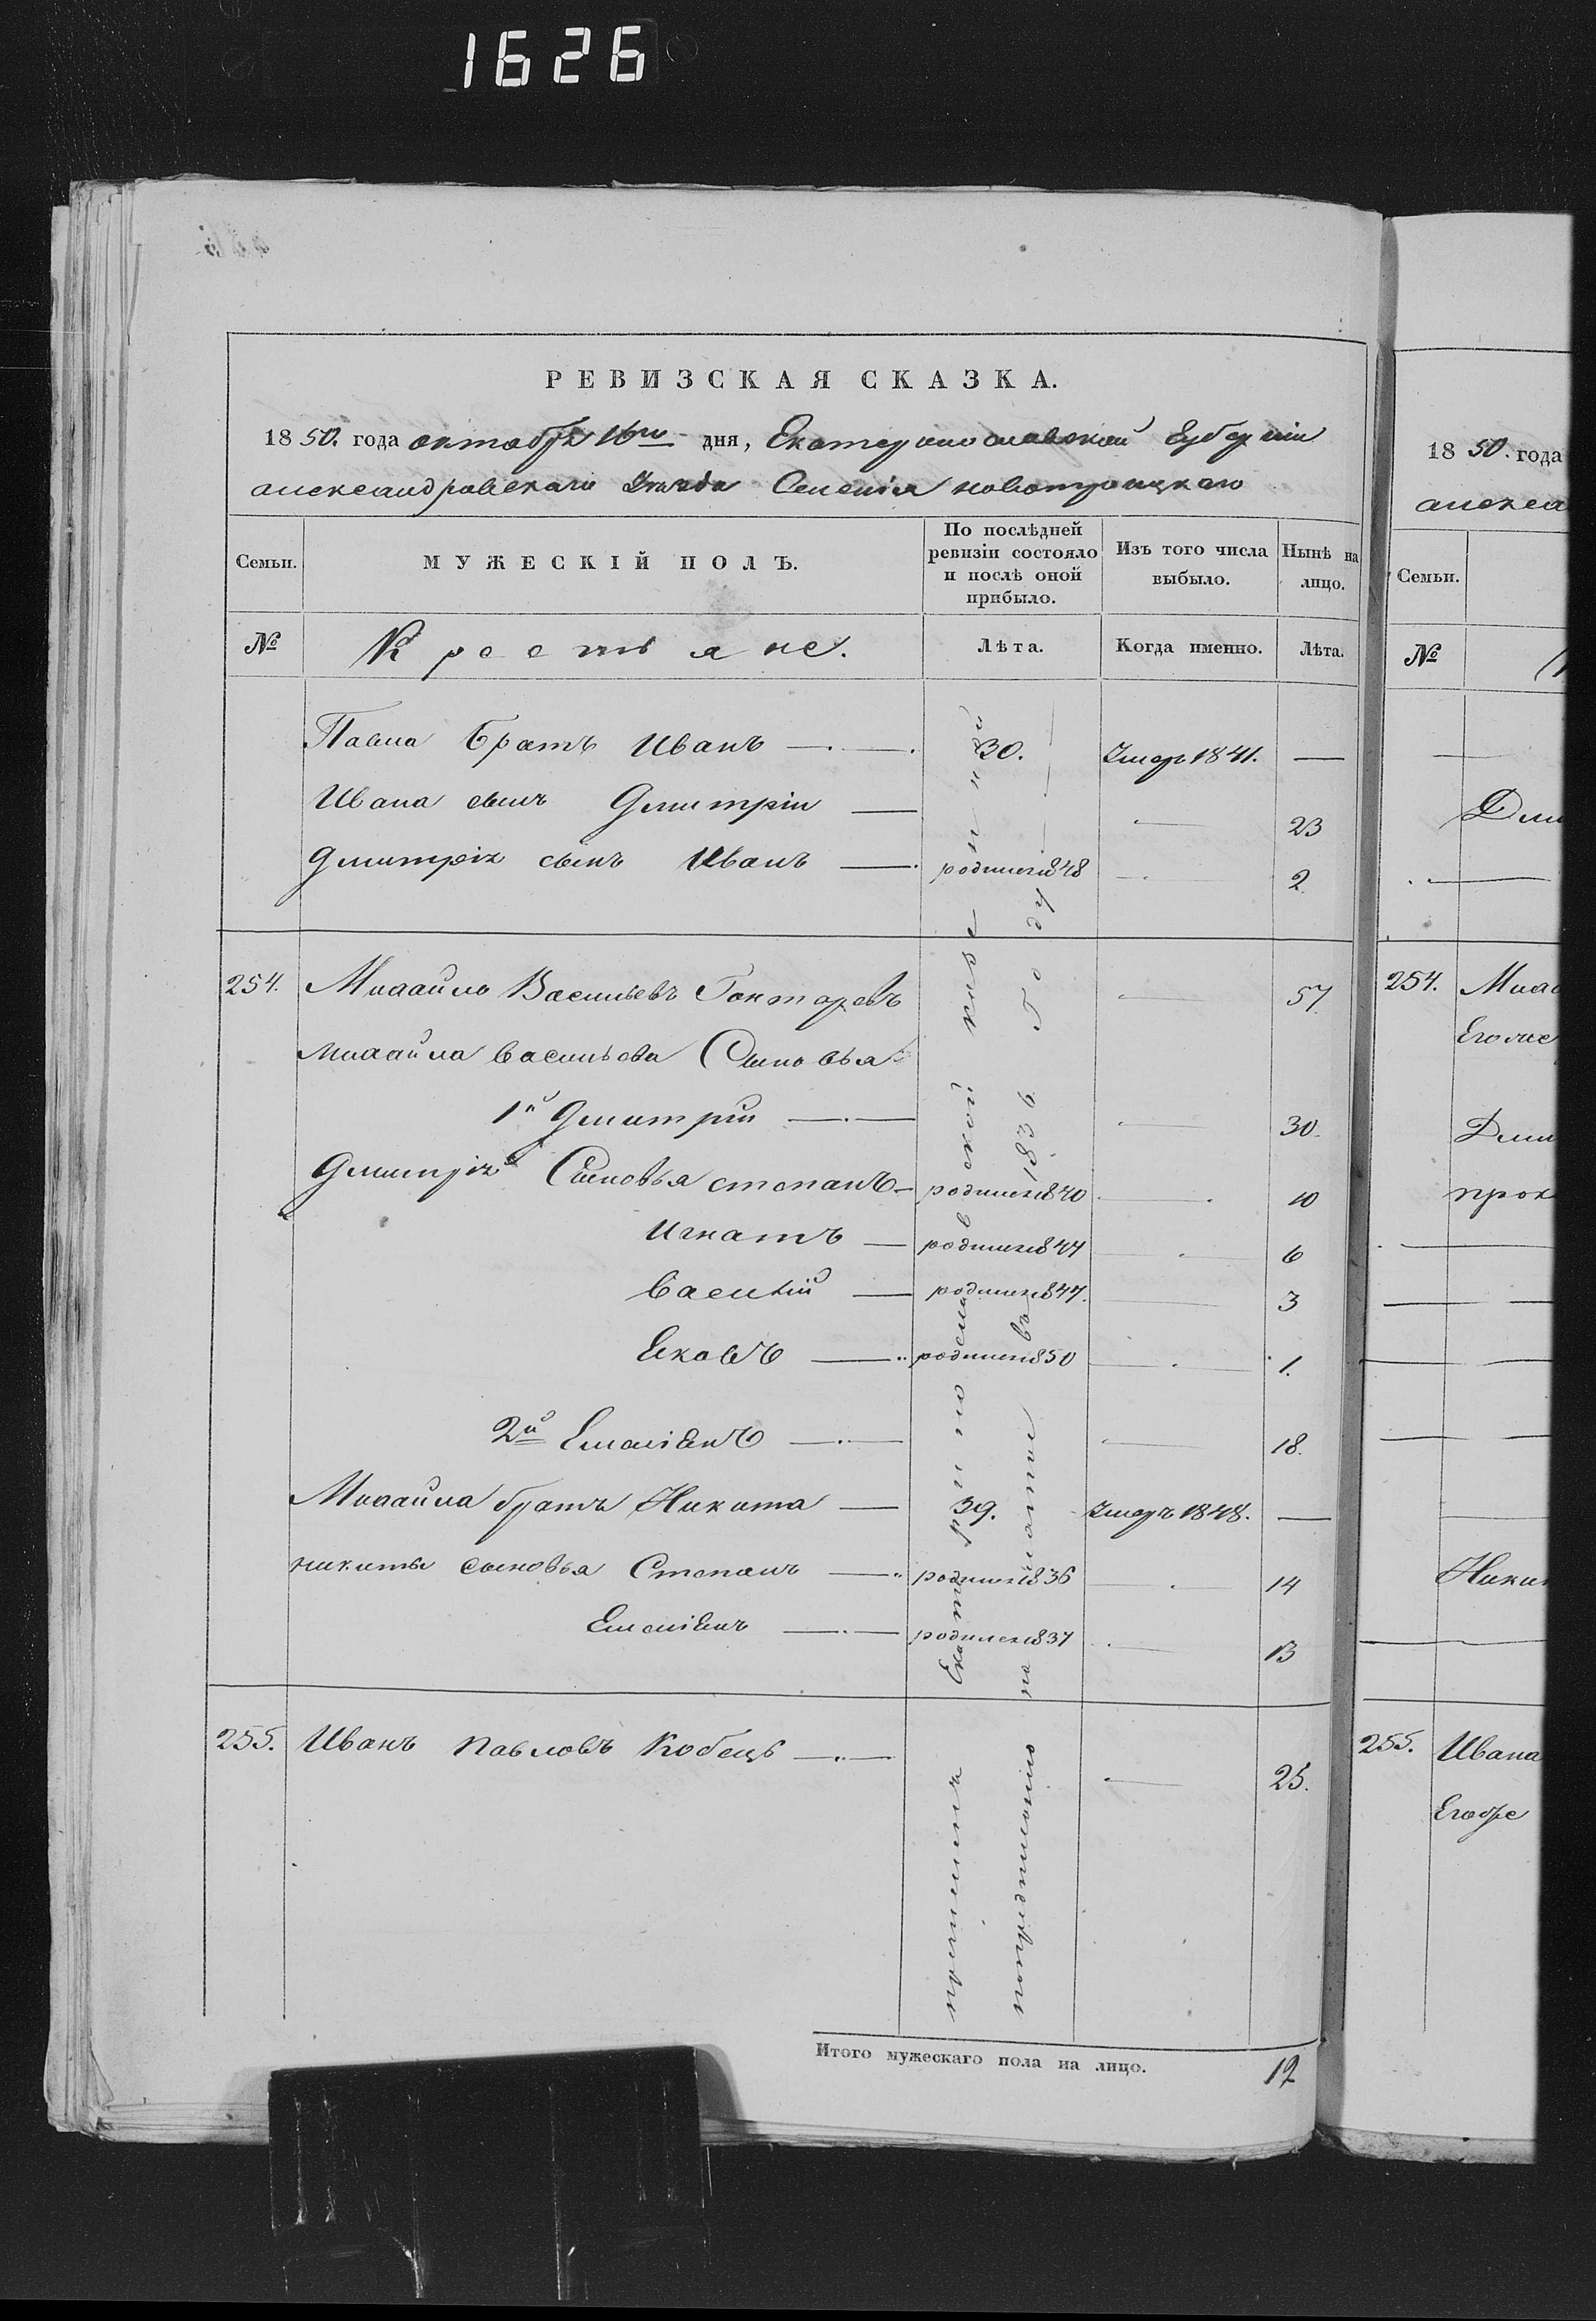 1626
РЕВИЗСКАЯ СКАЗКА.
1850. года октября 16го дня, Екатеринославской Губернiи
александровскаго Уѣзда Селенiя новотроицкаго
Семьи. МУЖЕСКІЙ ПОЛЪ. По послѣдней ревизіи состояло и послѣ оной прибыло. Изъ того числа выбыло. Нынѣ на лицо.
№ Крестьяне. Лѣта. Когда именно. Лѣта.
Павла братъ Иванъ — 30. Умеръ 1841. —
Ивана сынъ Дмитрiи — 23
Дмитрiя сынъ Иванъ — родился 1848 — 2
254. Михайло Васильевъ Гонтаревъ — 57
Михайла васильева Сыновья
1й Дмитрiи — 30.
Дмитрiя Сыновья степанъ — родился 1840 — 10
Игнатъ — родился 1844 — 6
Василiй — родился 1847. — 3
Еково — родился 1850 — 1.
2й Емелiянъ — 18.
Михайла братъ Никита — 39. Умеръ 1848. —
никиты сыновья Степанъ — родился 1836 — 14
Емелiянъ — родился 1837 — 13
255. Иванъ Павловъ Кобецъ — 25.
причисленъ
по
въ 1836 Году
Итого мужескаго пола на лицо. 12
1850. года
алекса
Семьи.
№
Дми
254. Миха
Егоже
Дми
прок
Ники
255. Ивана
Егоже